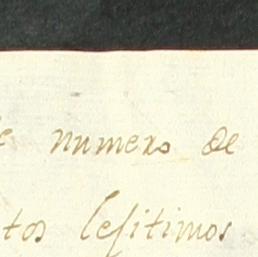 e numero de
tos lesitimos